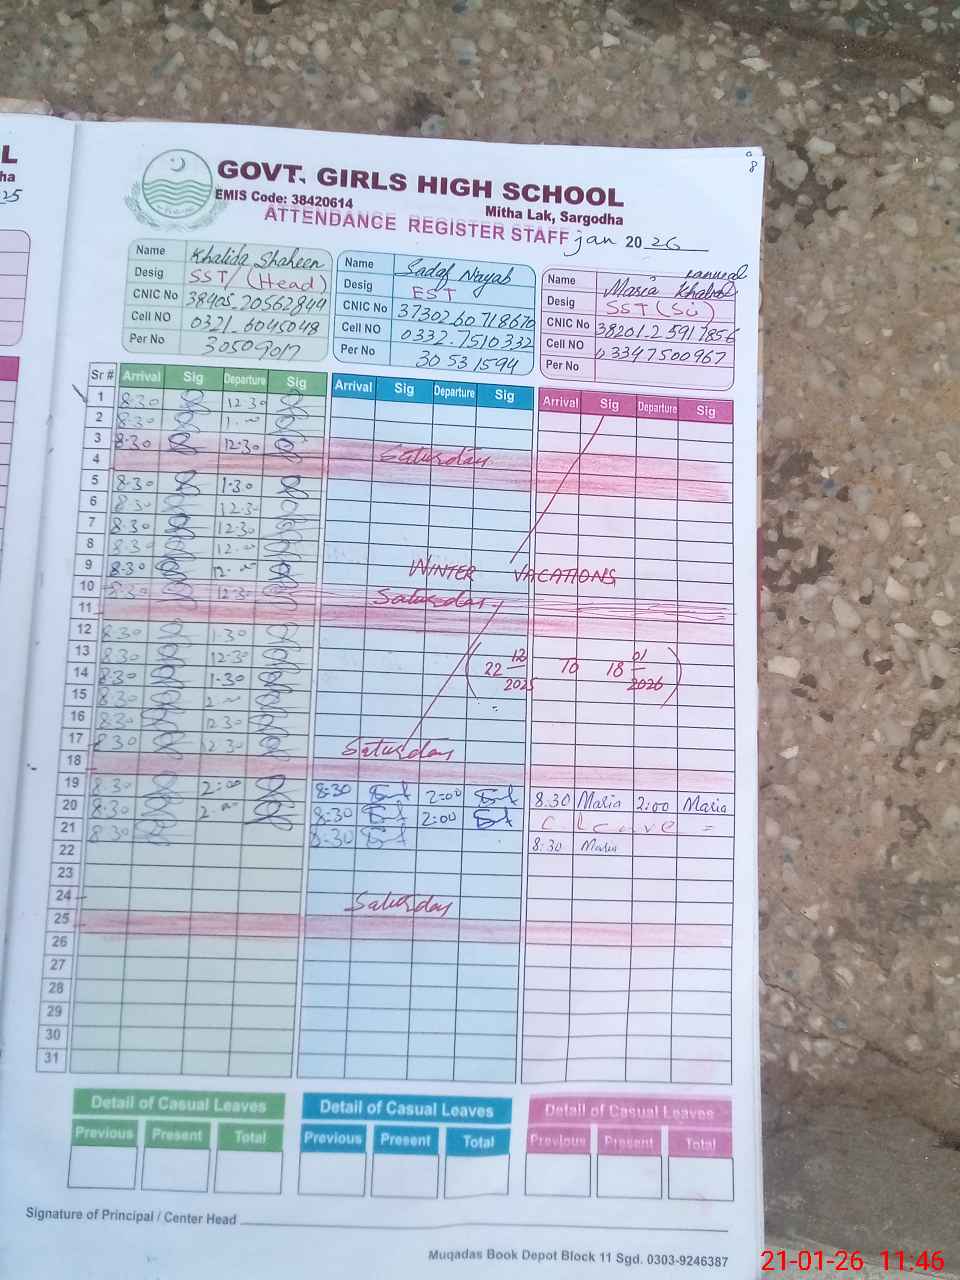 L
ha
25
8
GOVT. GIRLS HIGH SCHOOL
EMIS Code: 38420614
Mitha Lak, Sargodha
ATTENDANCE REGISTER STAFF jan 2026
Name Khalida Shaheen
Desig SST (Head)
CNIC No 38405-20562844
Cell NO 0321-6045048
Per No 30509017
Name Sadaf Nayab
Desig EST
CNIC No 37302 60718670
Cell NO 0332-7510332
Per No 30531594
Name Maria Khalid
Desig SST (Sc)
CNIC No 38201-25917856
Cell NO 03347500967
Per No
Sr # Arrival Sig Departure Sig Arrival Sig Departure Sig Arrival Sig Departure Sig
1 8:30 12:30
2 8:30 1:00
3 8:30 12:30 Saturday
4
5 8:30 1:30
6 8:30 12:30
7 8:30 12:30
8 8:30 12:00
9 8:30 12:00 WINTER VACATIONS
10 8:30 12:30 Saturday
11
12 8:30 1:30
13 8:30 12:30 (22 12 2025 To 18 01 2026)
14 8:30 1:30
15 8:30 2:00
16 8:30 12:30
17 8:30 12:30 Saturday
18
19 8:30 2:00 8:30 2:00 8:30 Maria 2:00 Maria
20 8:30 2:00 8:30 2:00 C. leave
21 8:30 8:30 8:30 Maria
22
23
24 Saturday
25
26
27
28
29
30
31
Detail of Casual Leaves Detail of Casual Leaves Detail of Casual Leaves
Previous Present Total Previous Present Total Previous Present Total
Signature of Principal / Center Head
Muqadas Book Depot Block 11 Sgd. 0303-9246387
21-01-26 11:46